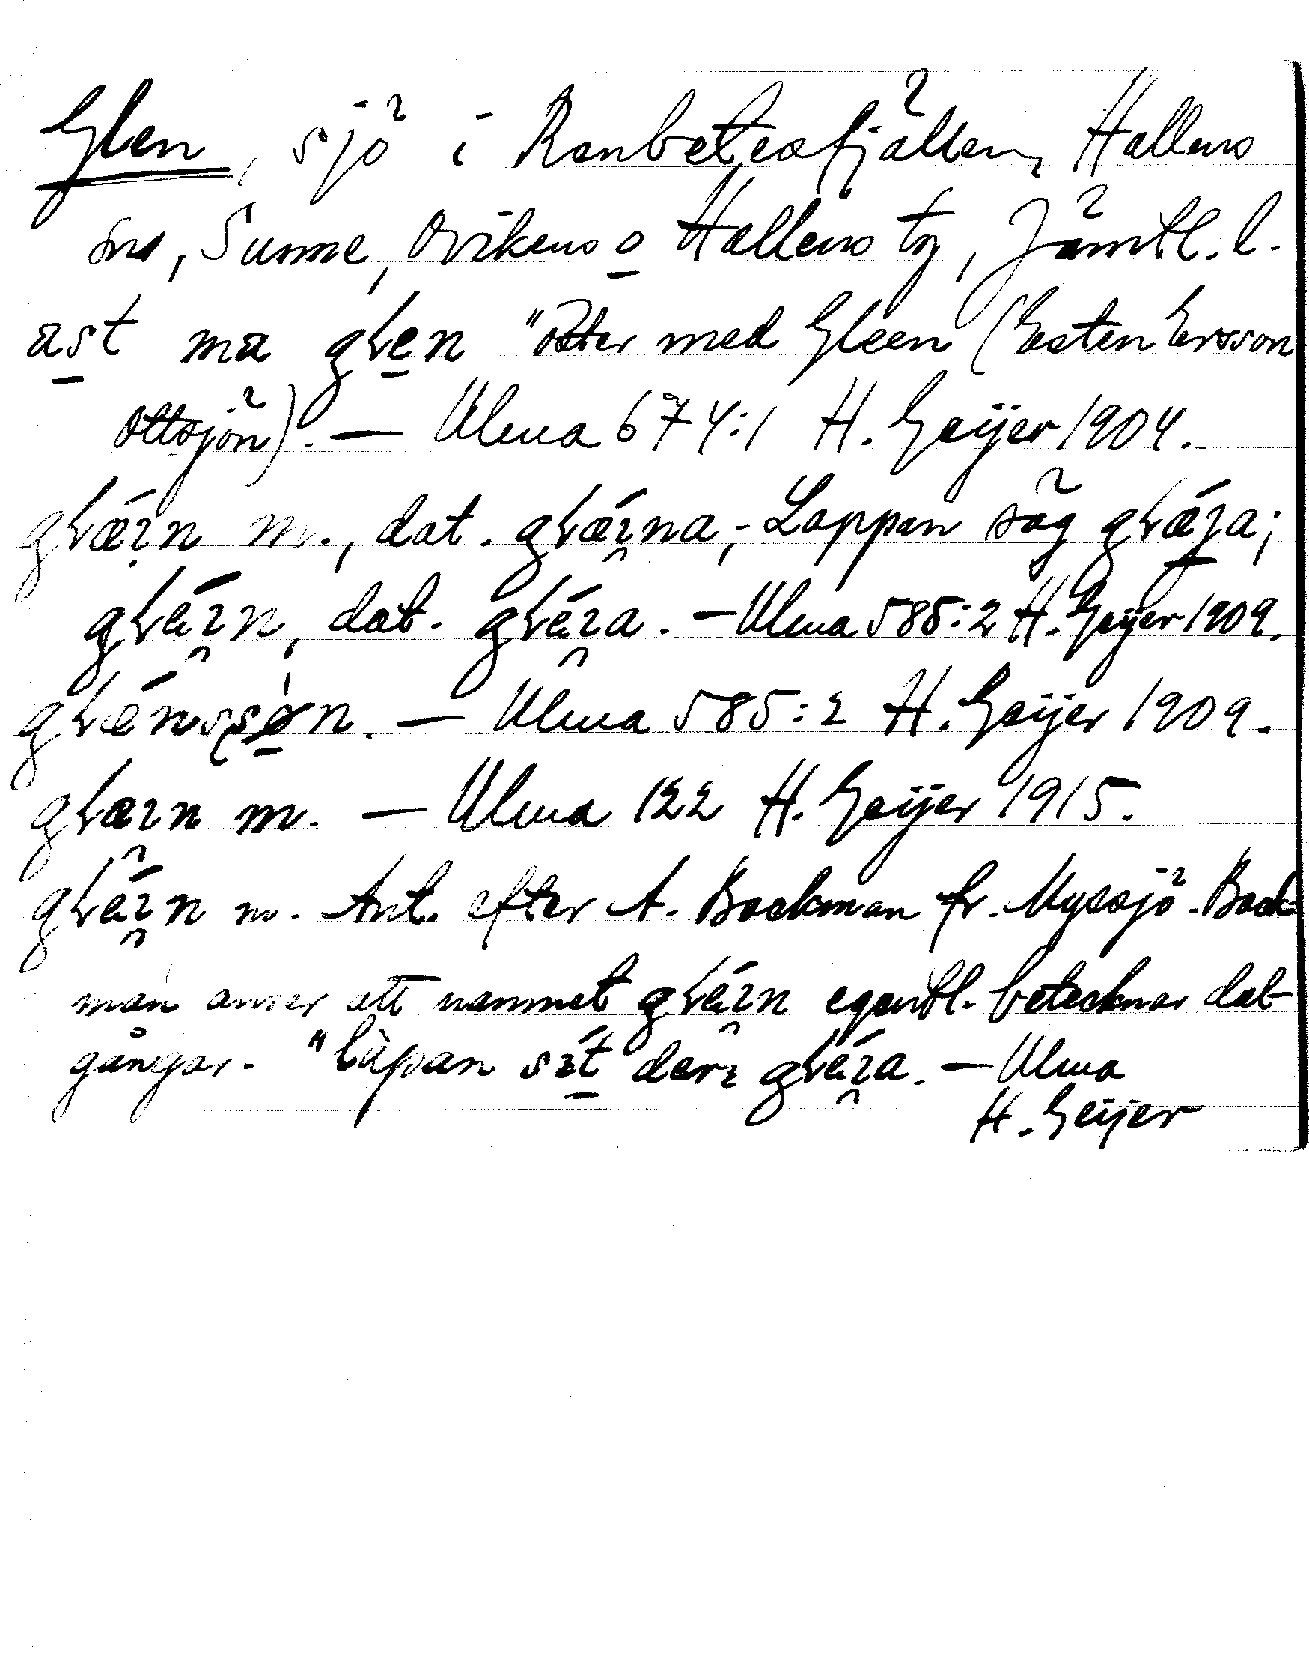 Glen, sjö i Renbetesfjällen, Hallens
sn, Sunne, Ovikens o Hallens tg, Jämtl. l.
ast ma glen "öster med Gleen (Esten Ersson
Ottsjön). — Ulma 674:1 H. Geijer 1904.
glǽın m., dat. glǽına; Lappen såg glǽıa;
gléın, dat. gléıa. — Ulma 585:2 H. Geijer 1909.
— Ulma 585:2 H. Geijer 1909.
glæın m. — Ulma 122 H. Geijer 1915.
gléın m. Ant. efter A. Backman fr. Myssjö. Back-
man anser att namnet gléın egentl. betecknar dal-
gångar. "làpan sıt deri gléıa. — Ulma
H. Geijer